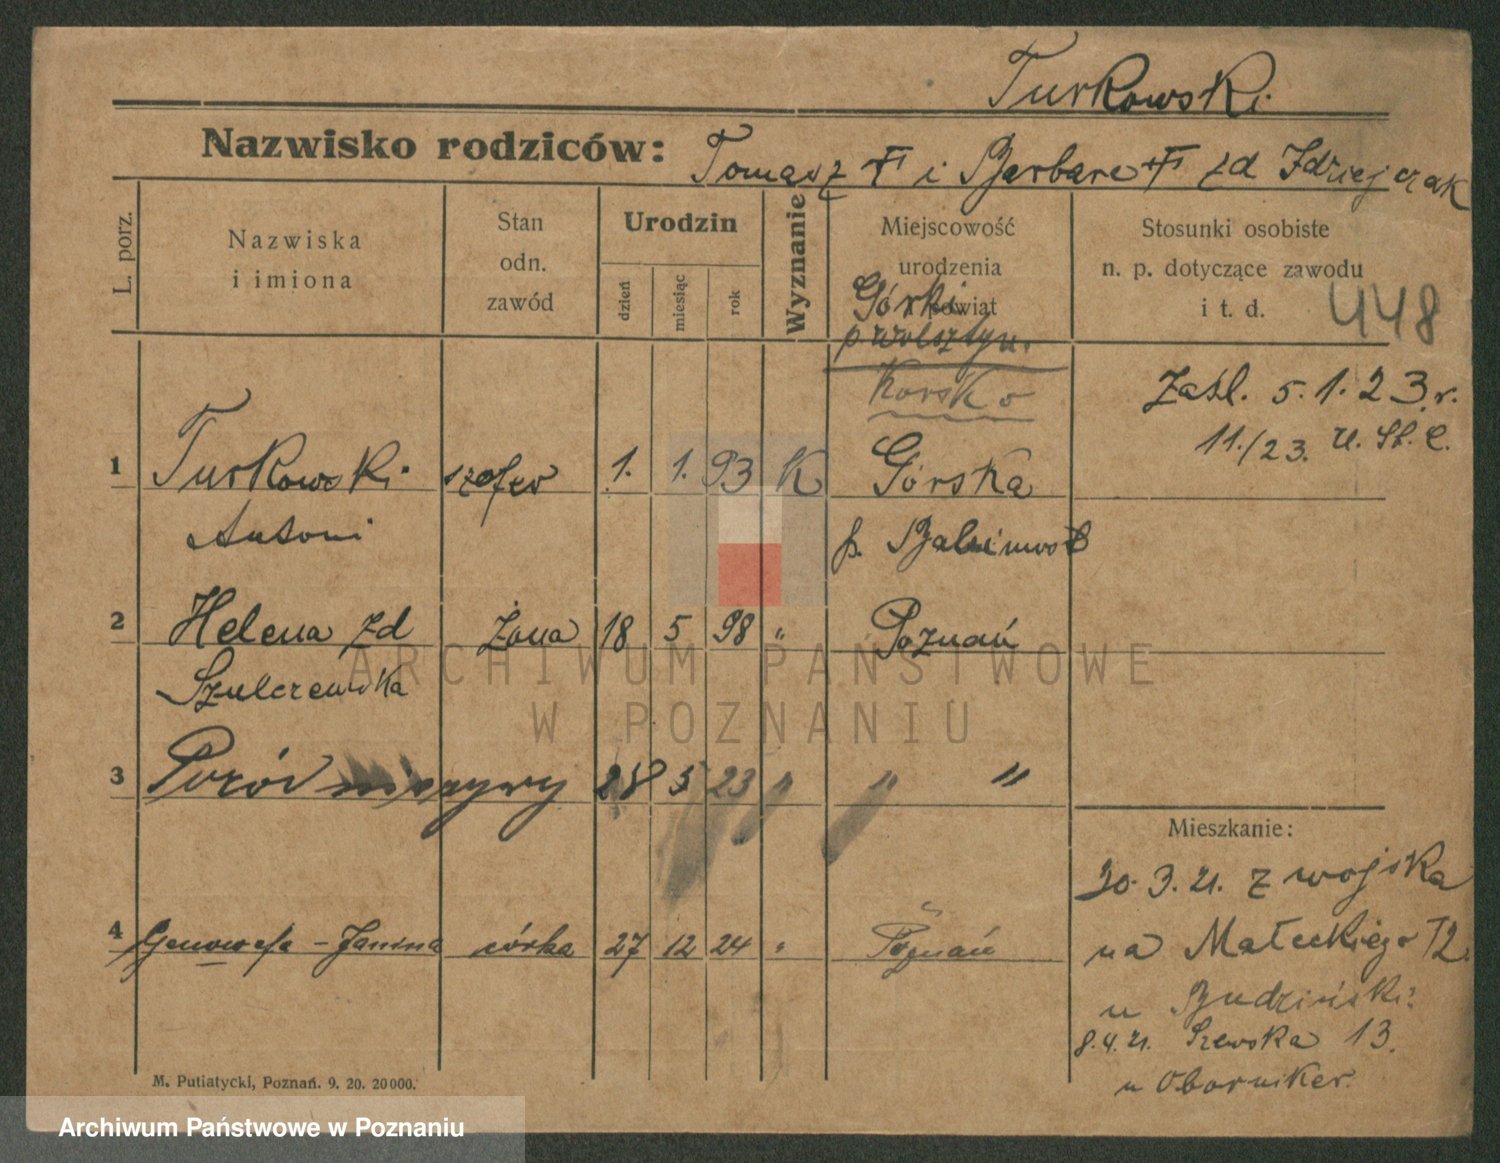 Turkowski
Nazwisko rodziców: Tomasz i Barbara zd Idziejczak
L. porz.
Nazwiska
i imiona
Stan
odn.
zawód
Urodzin
dzień
miesiąc
rok
Wyznanie
Miejscowość
urodzenia
powiat
Górki
p. Wolsztyn.
Stosunki osobiste
n. p. dotyczące zawodu
i t. d.
448
Korsko
Zaśl. 5.1.23.r.
11./23. U. St. C.
1 Turkowski szofer 1. 1. 93 K Górska
Antoni p.
2 Helena zd żona 18 5 98 " Poznań
Szulczewska
3 Poród nieżywy 28 5 23 " " "
Mieszkanie:
30.3.21. z wojska
na Małeckiego 12.
u Budziński
8.4.21. Szewska 13.
u Oborniker.
4 Genowefa - Janina córka 27 12 24 " Poznań
M. Putiatycki, Poznań. 9. 20. 20000.
ARCHIWUM PAŃSTWOWE
W POZNANIU
Archiwum Państwowe w Poznaniu